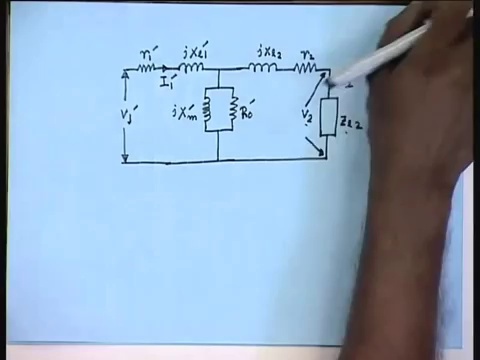 r₁' jXℓ₁' jXℓ₂ r₂
I₁'
V₁' jX'm R₀' V₂ Zℓ₂